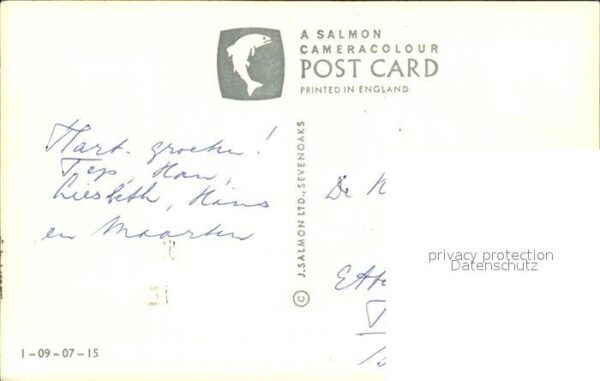 A SALMON
CAMERACOLOUR
POST CARD
PRINTED IN ENGLAND
Hart. groeten!
Tep, Han,
Liesbeth, Hans
en Maarten
© J. SALMON LTD., SEVENOAKS
De
privacy protection
Datenschutz
1-09-07-15